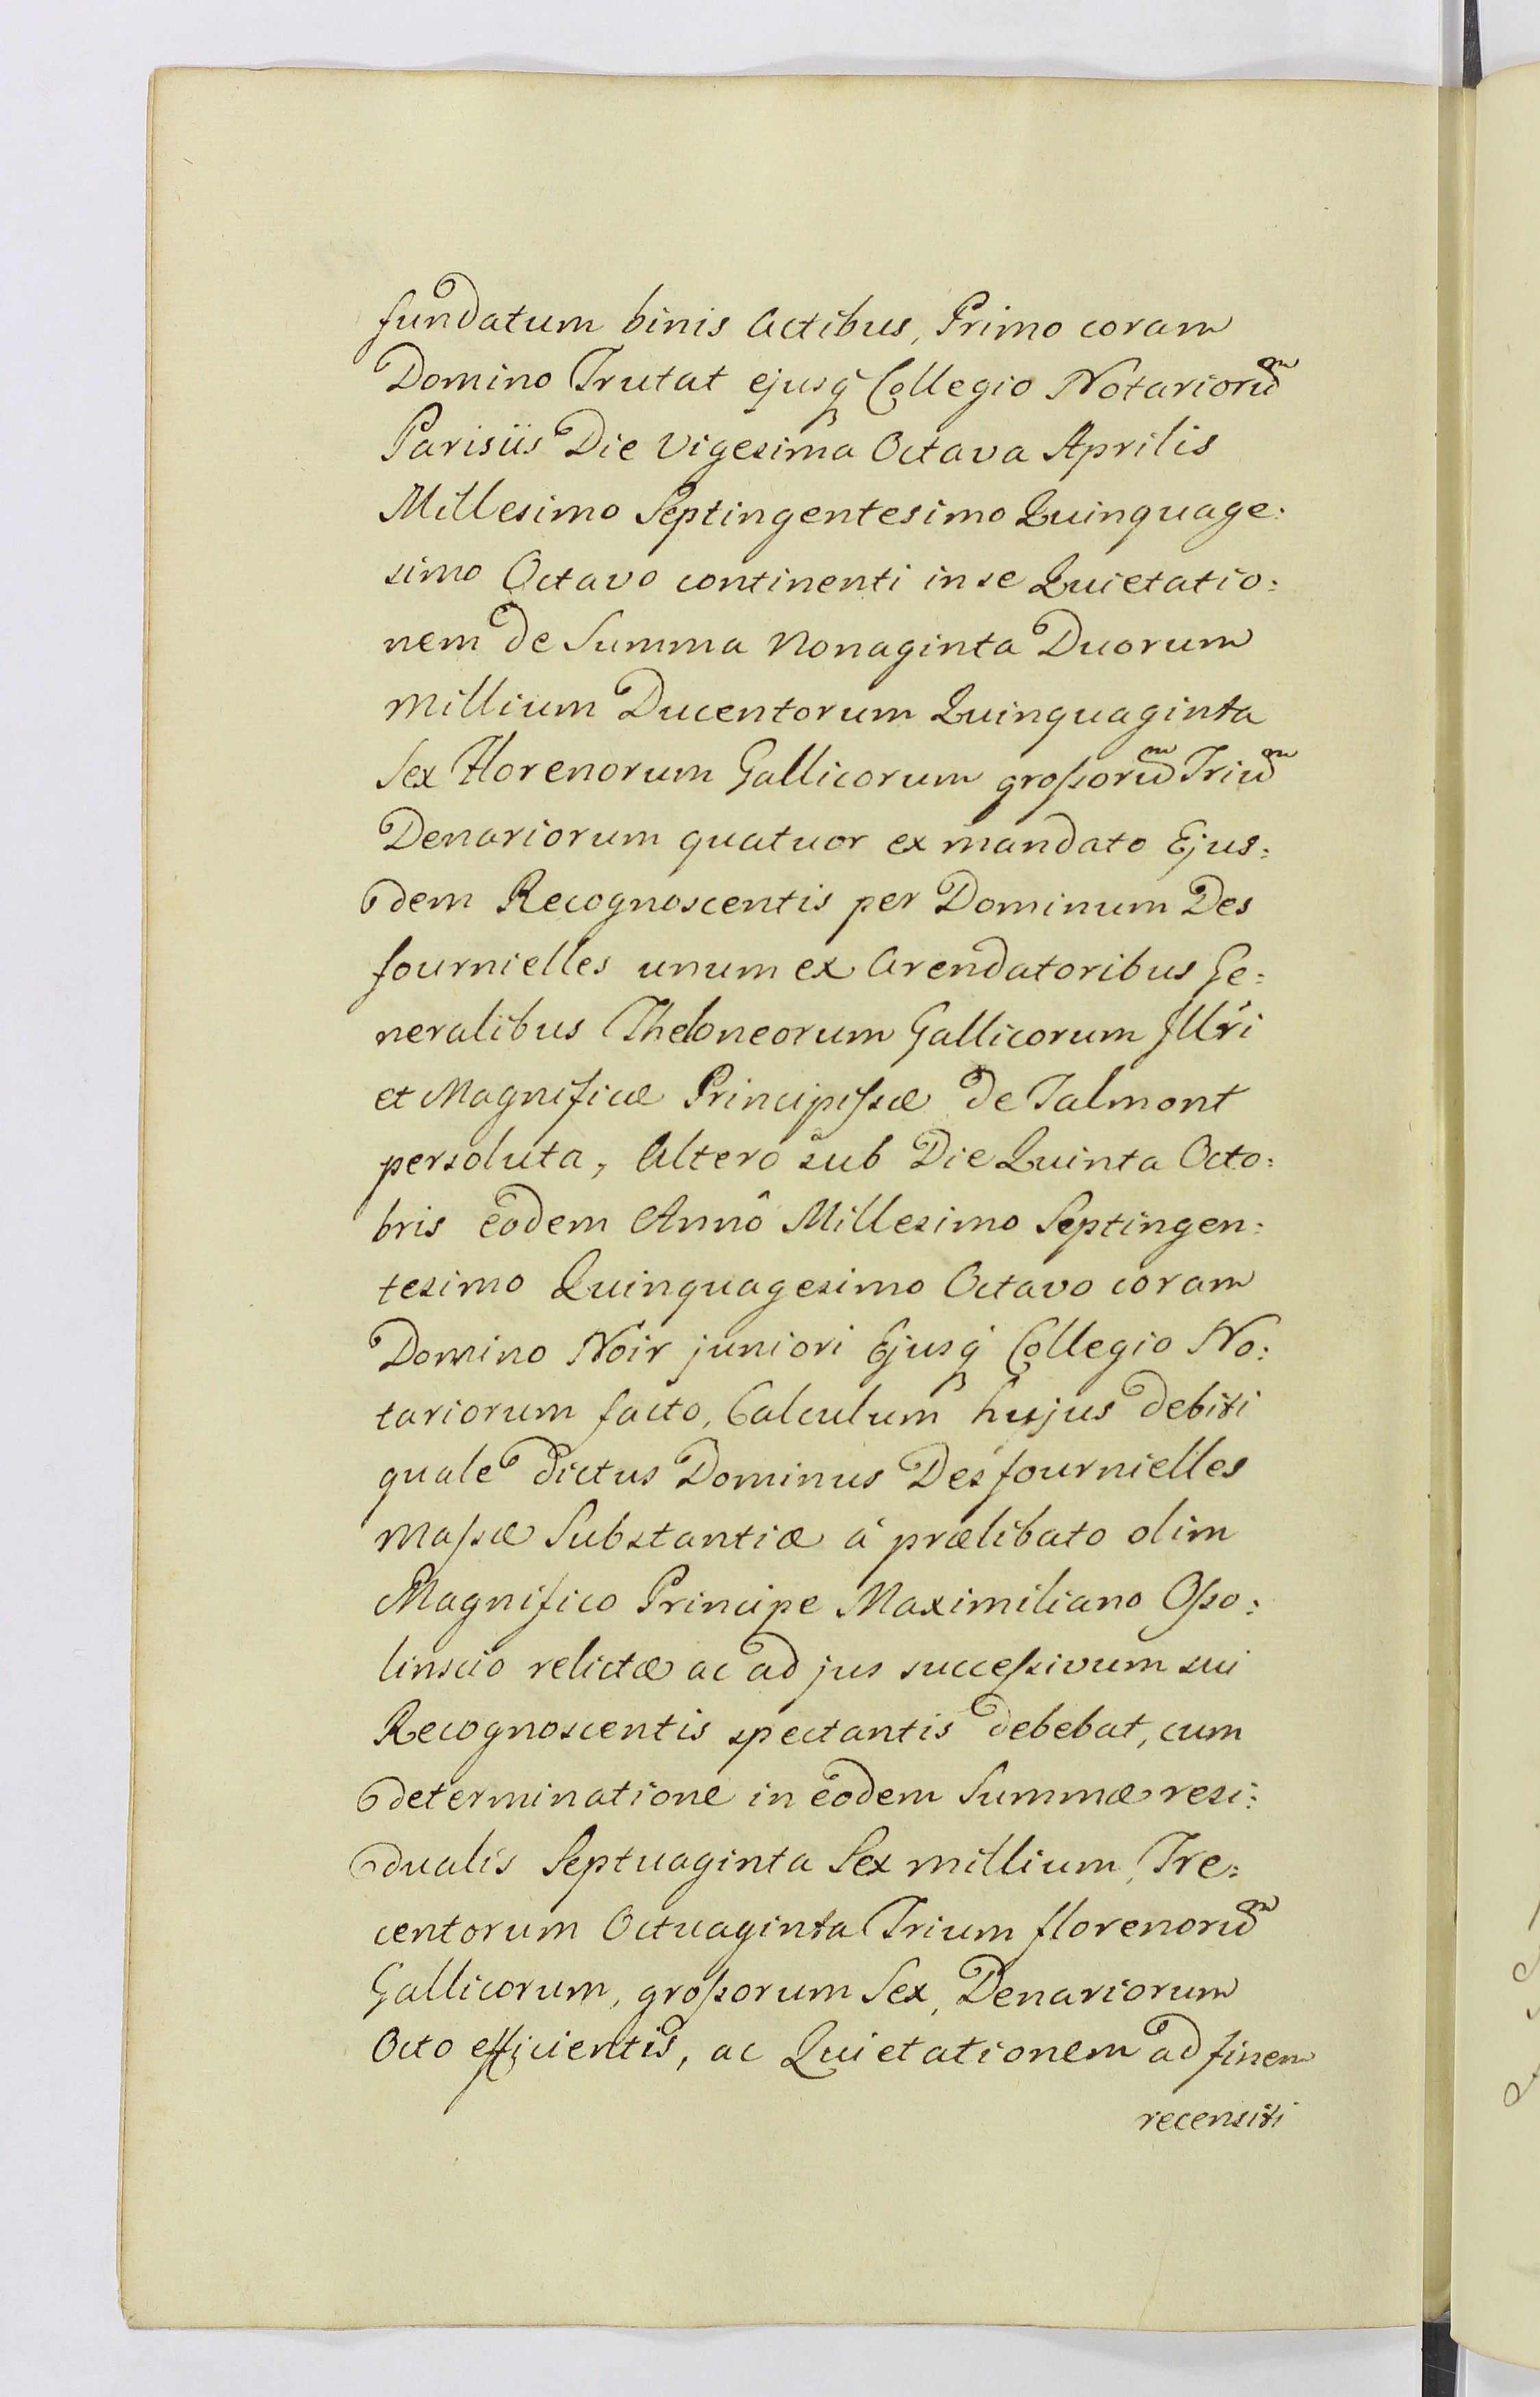 fundatum binis Actibus, Primo coram
Domino Trutat ejusq̃ Collegio Notarioruᵐ
Parisiis Die vigesima Octava Aprilis
Millesimo Septingentesimo Quinquage:
simo Octavo continenti in se Quietatio:
nem de Summa Nonaginta Duorum
Millium Ducentorum Quinquaginta
Sex Florenorum Gallicorum großoruᵐ Triuᵐ
Denariorum quatuor ex mandato Ejus:
dem Recognoscentis per Dominum Des
fournielles unum ex Arendatoribus Ge:
neralibus Theloneorum Gallicorum Illr̃i
et Magnificæ Principißæ de Talmont
persoluta, Altero sub Die Quinta Octo:
bris eodem Annô Millesimo Septingen:
tesimo Quinquagesimo Octavo coram
Domino Noir juniori Ejusq̃ Collegio No:
tariorum facto, Calculum hujus debiti
quale dictus Dominus Desfournielles
Maßæ Substantiæ à prælibato olim
Magnifico Principe Maximiliano Oßo:
linscio relictæ ac ad jus succeßivum sui
Recognoscentis spectantis debebat, cum
determinatione in eodem Summæ resi:
dualis Septuaginta Sex millium, Tre:
centorum Octuaginta Trium florenoruᵐ
Gallicorum, großorum Sex, Denariorum
Octo efficientis, ac Quietationem ad finem
recensiti